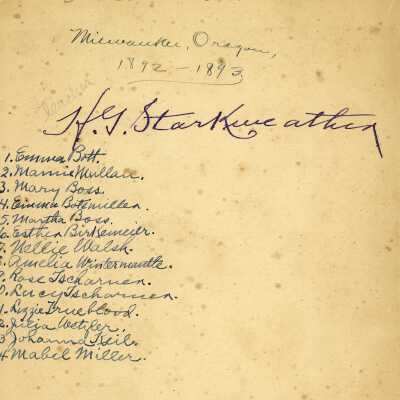 Milwaukee, Oregon,
1892-1893
Teacher
H.G. Starkweather
1. Emma Bott.
2. Mamie Mullace.
3. Mary Boss.
4. Emma Botemiller.
5. Martha Boss.
6. Esther Birkemeier.
7. Nellie Walsh.
8. Amelia Wintermantle.
9. Rose Tscharner.
0. Lucy Tscharner.
1. Lizzie Trueblood.
2. Julia Wetzler.
3 Johanna Keil.
4 Mabil Miller.